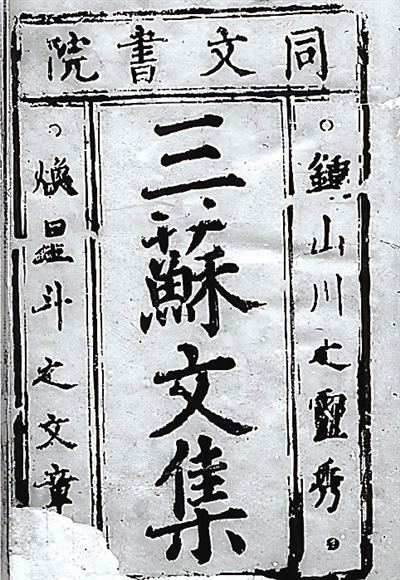 同文書院
鍾山川之靈秀
三蘇文集
煥星斗之文章